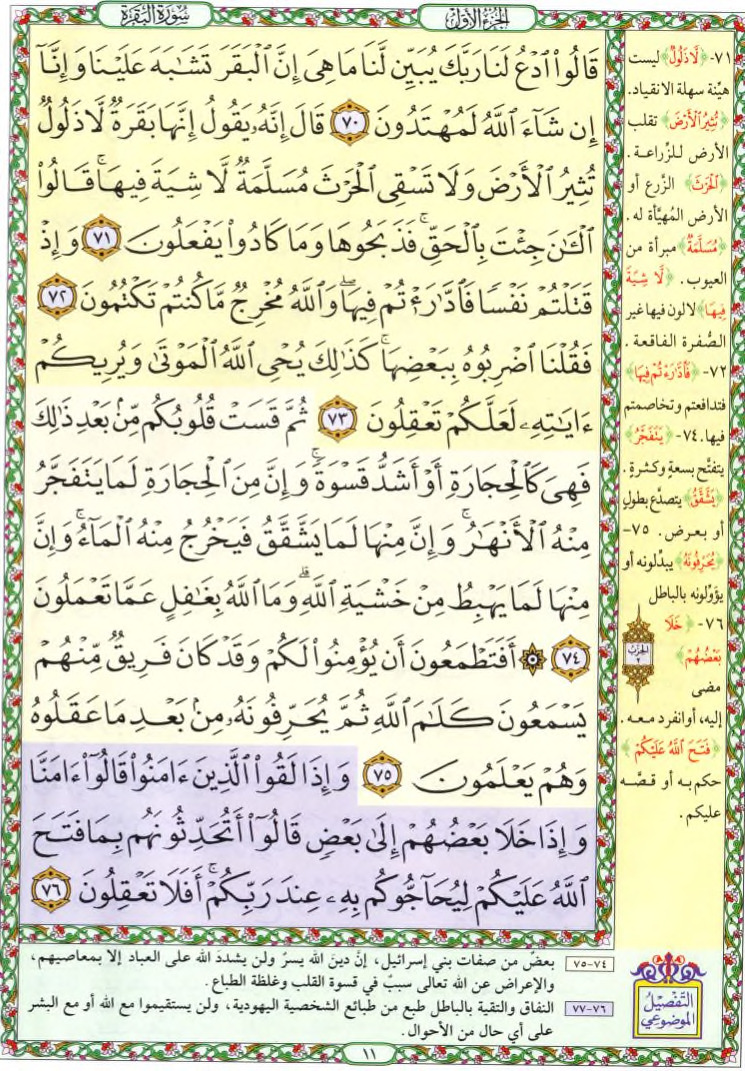 سُورَةُ البَقَرَةِ
الجُزْءُ الأَوَّلُ
قَالُواْ ٱدۡعُ لَنَا رَبَّكَ يُبَيِّن لَّنَا مَا هِىَ إِنَّ ٱلۡبَقَرَ تَشَٰبَهَ عَلَيۡنَا وَإِنَّآ
إِن شَآءَ ٱللَّهُ لَمُهۡتَدُونَ ٧٠ قَالَ إِنَّهُۥ يَقُولُ إِنَّهَا بَقَرَةٌ لَّا ذَلُولٌ
تُثِيرُ ٱلۡأَرۡضَ وَلَا تَسۡقِى ٱلۡحَرۡثَ مُسَلَّمَةٌ لَّا شِيَةَ فِيهَاۚ قَالُواْ
ٱلۡـَٰٔنَ جِئۡتَ بِٱلۡحَقِّۚ فَذَبَحُوهَا وَمَا كَادُواْ يَفۡعَلُونَ ٧١ وَإِذۡ
قَتَلۡتُمۡ نَفۡسًا فَٱدَّٰرَٰٔتُمۡ فِيهَاۖ وَٱللَّهُ مُخۡرِجٌ مَّا كُنتُمۡ تَكۡتُمُونَ ٧٢
فَقُلۡنَا ٱضۡرِبُوهُ بِبَعۡضِهَاۚ كَذَٰلِكَ يُحۡىِ ٱللَّهُ ٱلۡمَوۡتَىٰ وَيُرِيكُمۡ
ءَايَٰتِهِۦ لَعَلَّكُمۡ تَعۡقِلُونَ ٧٣ ثُمَّ قَسَتۡ قُلُوبُكُم مِّنۢ بَعۡدِ ذَٰلِكَ
فَهِىَ كَٱلۡحِجَارَةِ أَوۡ أَشَدُّ قَسۡوَةًۚ وَإِنَّ مِنَ ٱلۡحِجَارَةِ لَمَا يَتَفَجَّرُ
مِنۡهُ ٱلۡأَنۡهَٰرُۚ وَإِنَّ مِنۡهَا لَمَا يَشَّقَّقُ فَيَخۡرُجُ مِنۡهُ ٱلۡمَآءُۚ وَإِنَّ
مِنۡهَا لَمَا يَهۡبِطُ مِنۡ خَشۡيَةِ ٱللَّهِۗ وَمَا ٱللَّهُ بِغَٰفِلٍ عَمَّا تَعۡمَلُونَ
٧٤ ۞ أَفَتَطۡمَعُونَ أَن يُؤۡمِنُواْ لَكُمۡ وَقَدۡ كَانَ فَرِيقٌ مِّنۡهُمۡ
يَسۡمَعُونَ كَلَٰمَ ٱللَّهِ ثُمَّ يُحَرِّفُونَهُۥ مِنۢ بَعۡدِ مَا عَقَلُوهُ
وَهُمۡ يَعۡلَمُونَ ٧٥ وَإِذَا لَقُواْ ٱلَّذِينَ ءَامَنُواْ قَالُوٓاْ ءَامَنَّا
وَإِذَا خَلَا بَعۡضُهُمۡ إِلَىٰ بَعۡضٍ قَالُوٓاْ أَتُحَدِّثُونَهُم بِمَا فَتَحَ
ٱللَّهُ عَلَيۡكُمۡ لِيُحَآجُّوكُم بِهِۦ عِندَ رَبِّكُمۡۚ أَفَلَا تَعۡقِلُونَ ٧٦
٧١- ﴿لَّا ذَلُولٌ﴾ ليست
هيّنة سهلة الانقياد.
﴿تُثِيرُ ٱلۡأَرۡضَ﴾ تقلب
الأرض للزِّراعة.
﴿ٱلۡحَرۡثَ﴾ الزَّرع أو
الأرض المُهيَّأة له.
﴿مُسَلَّمَةٌ﴾ مبرأة من
العيوب. ﴿لَّا شِيَةَ
فِيهَا﴾ لا لون فيها غير
الصُّفرة الفاقعة.
٧٢- ﴿فَٱدَّٰرَٰٔتُمۡ فِيهَا﴾
فتدافعتم وتخاصمتم
فيها. ٧٤- ﴿يَتَفَجَّرُ﴾
يتفتَّح بسعةٍ وكثرةٍ.
﴿يَشَّقَّقُ﴾ يتصدَّع بطولٍ
أو بعرض. ٧٥-
﴿يُحَرِّفُونَهُ﴾ يبدِّلونه أو
يؤوِّلونه بالباطل
٧٦- ﴿خَلَا
بَعۡضُهُمۡ﴾
مضى
إليه، أو انفرد معه.
﴿فَتَحَ ٱللَّهُ عَلَيۡكُمۡ﴾
حكم به أو قصَّه
عليكم.
الحِزْبُ
٢
التَّفْصِيلُ
المَوْضُوعِي
٧٤-٧٥ بعضٌ من صفات بني إسرائيل، إنَّ دينَ الله يسرٌ ولن يشددَ الله على العباد إلا بمعاصيهم،
والإعراض عن الله تعالى سببٌ في قسوة القلب وغلظة الطباع.
٧٦-٧٧ النفاق والتقية بالباطل طبع من طبائع الشخصية اليهودية، ولن يستقيموا مع الله أو مع البشر
على أي حال من الأحوال.
١١